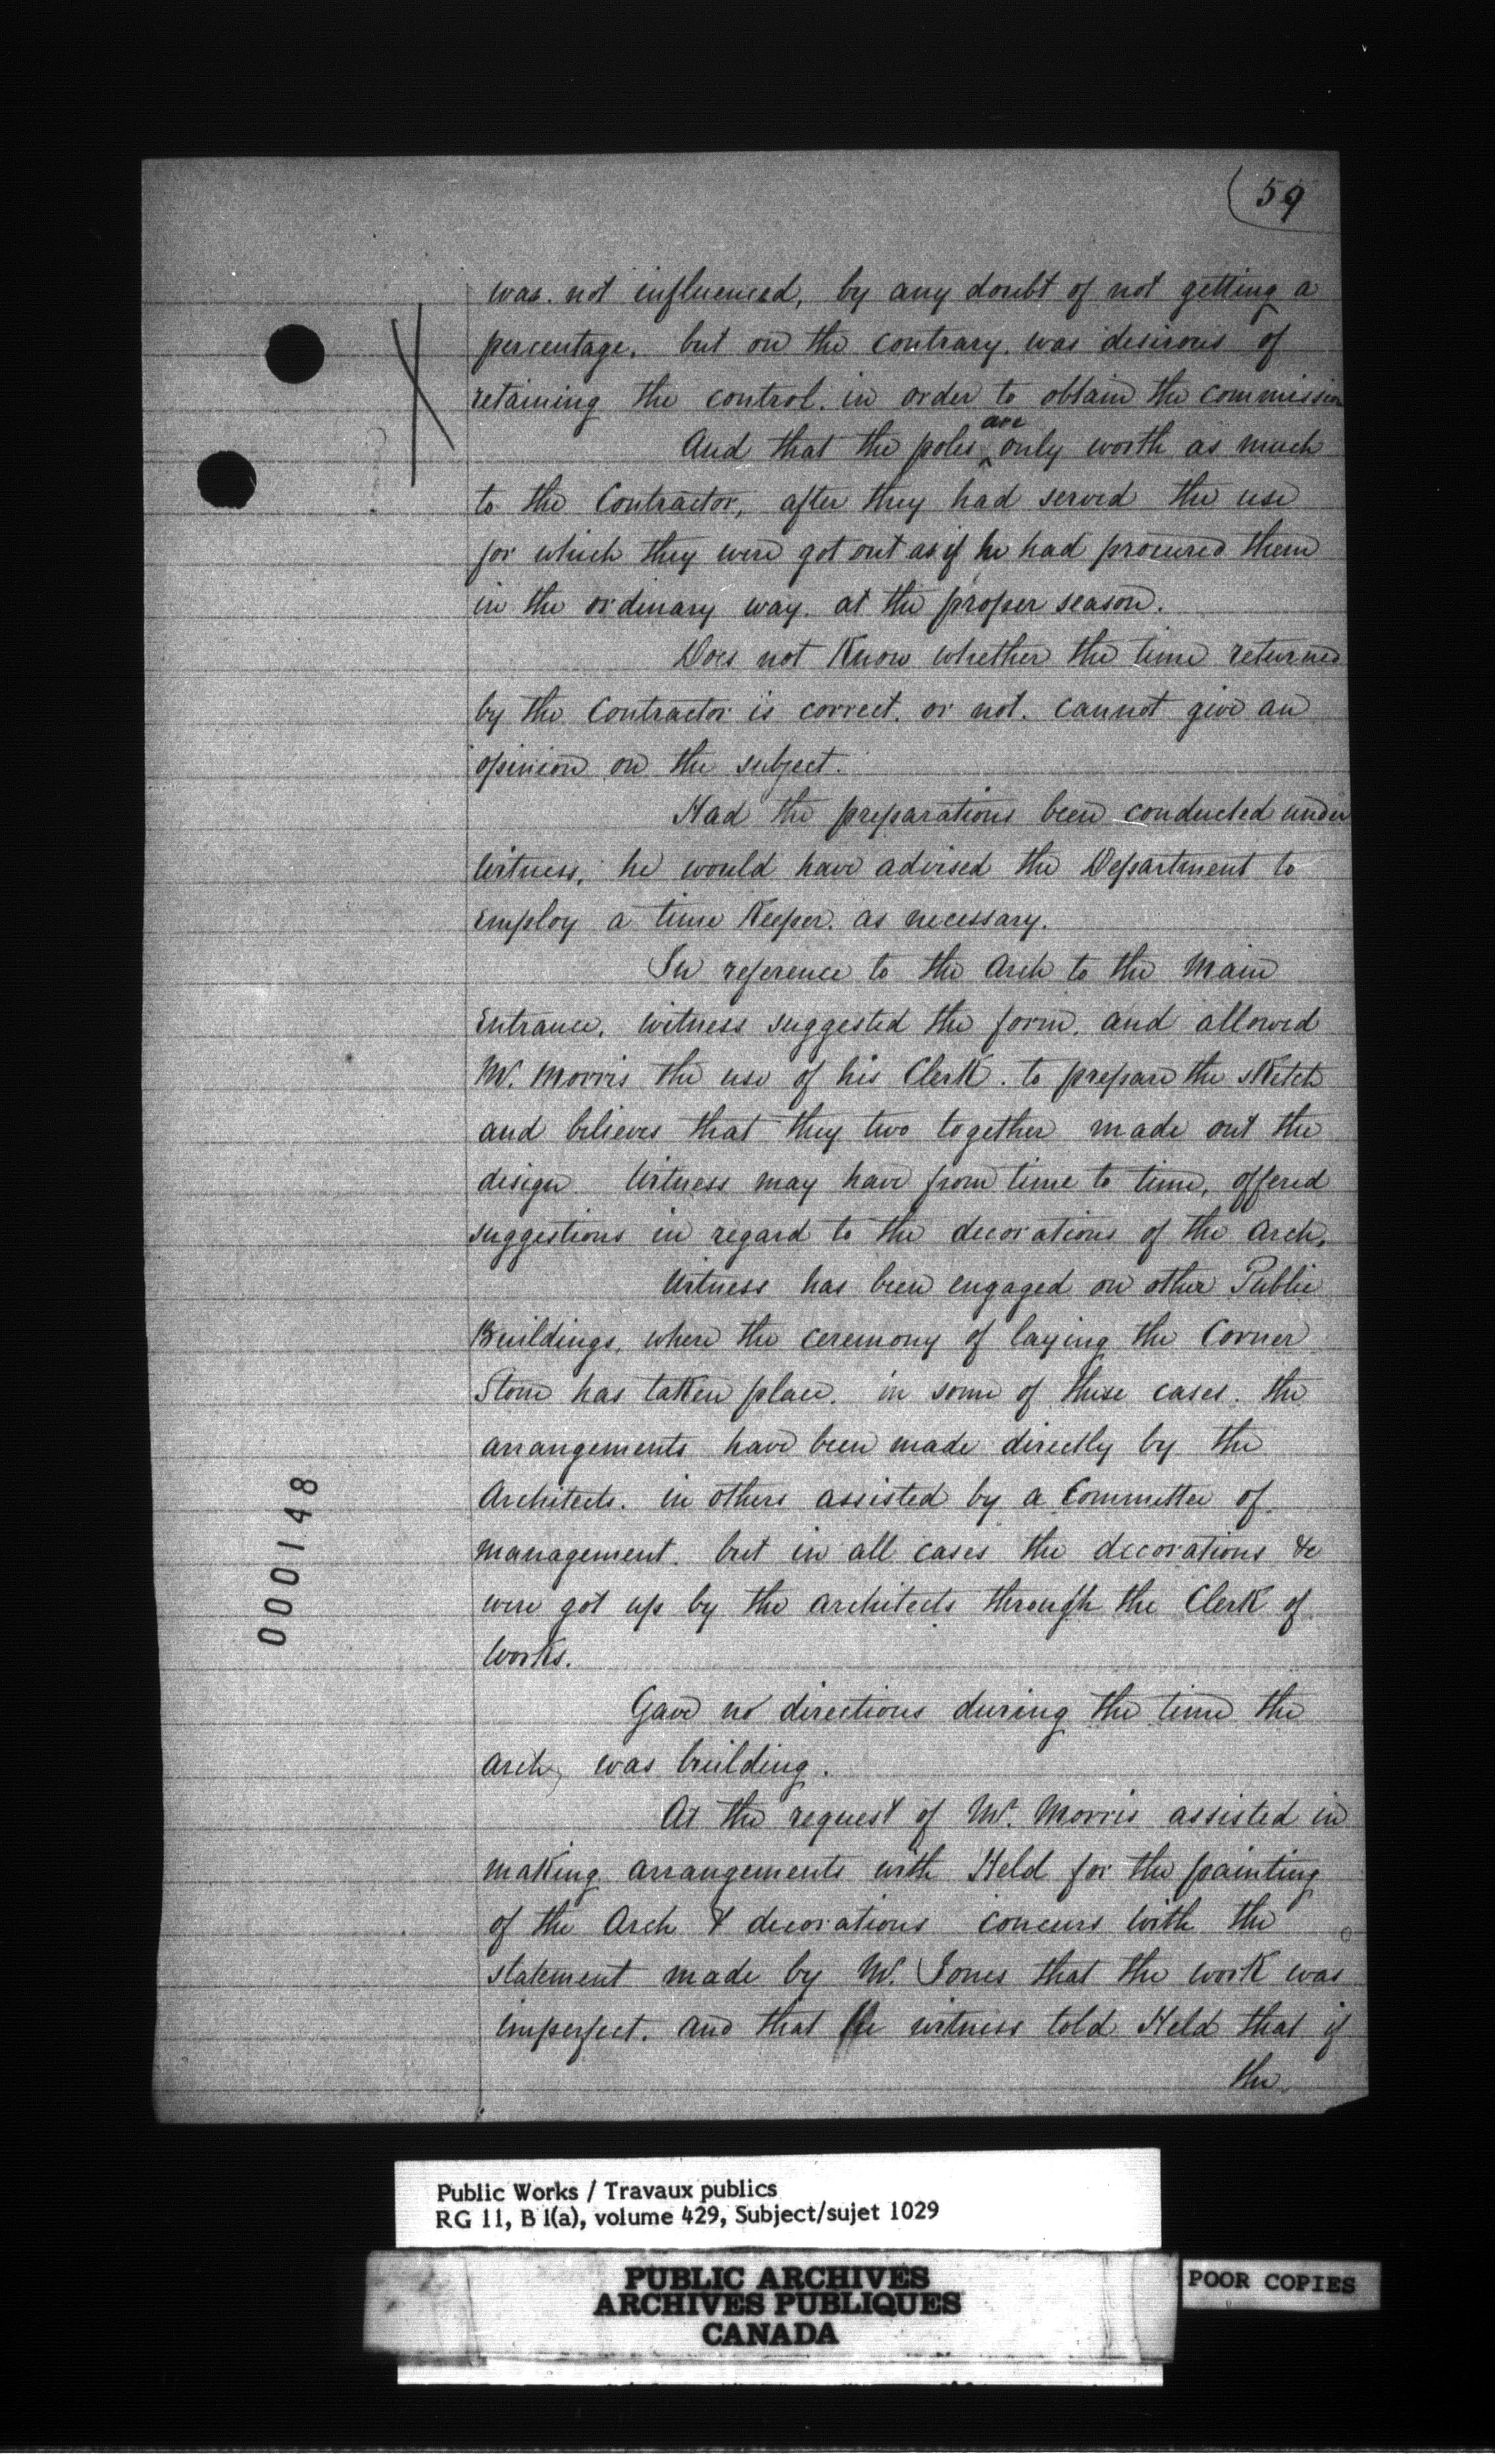 59
was. not influenced, by any doubt of not getting a
percentage. but on the contrary. was desirous of
retaining the control. in order to obtain the commission
And that the poles are only worth as much
to the Contractor, after they had served the use
for which they were got out as if he had procured them
in the ordinary way. at the proper season.
Does not Know whether the time returned
by the Contractor is correct. or not. cannot give an
opinion on the subject.
Had the preparations been conducted under
Witness, he would have advised the Department to
employ a time Keeper. as necessary.
In reference to the Arch to the Main
Entrance, witness suggested the form, and allowed
Mr. Morris the use of his Clerk. to prepare the sketch
and believes that they two together made out the
design. Witness may have from time to time, offered
suggestions in regard to the decorations of the Arch.
Witness has been engaged on other Public
Buildings, where the ceremony of laying the Corner
Stone has taken place. in some of these cases. the
arrangements have been made directly by the
Architects. in others assisted by a Committee of
management. but in all cases the decorations &c
were got up by the architects through the Clerk of
Works.
Gave no directions during the time the
arch, was building.
At the request of Mr. Morris assisted in
making arrangements with Held for the painting
of the Arch & decorations concurs with the
statement made by Mr. Jones that the work was
imperfect. and that he witness told Held that if
the
000148
Public Works / Travaux publics
RG 11, B 1(a), volume 429, Subject/sujet 1029
PUBLIC ARCHIVES
ARCHIVES PUBLIQUES
CANADA
POOR COPIES